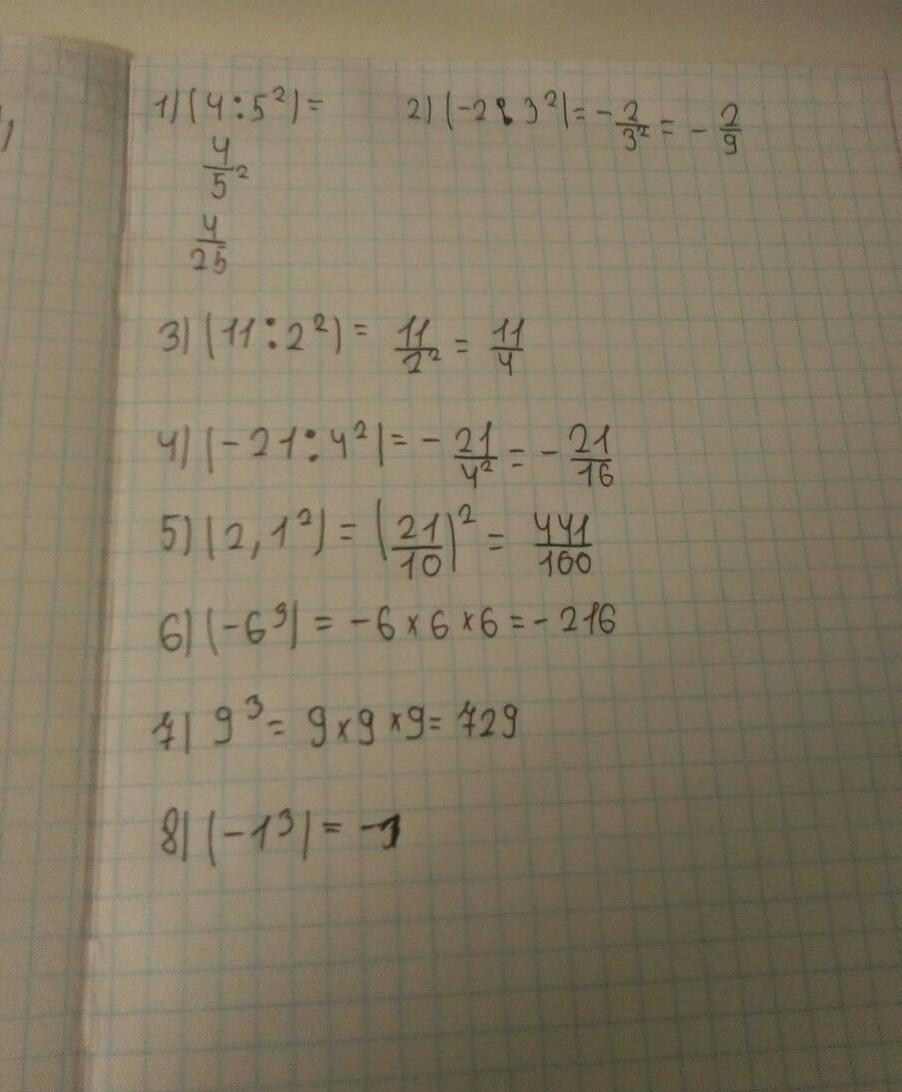 1) (4:5²) =
4/5²
4/25
2) (-2:3²) = -2/3² = -2/9
3) (11:2²) = 11/2² = 11/4
4) (-21:4²) = -21/4² = -21/16
5) (2,1²) = (21/10)² = 441/100
6) (-6³) = -6×6×6 = -216
7) 9³ = 9×9×9 = 729
8) (-1³) = -1